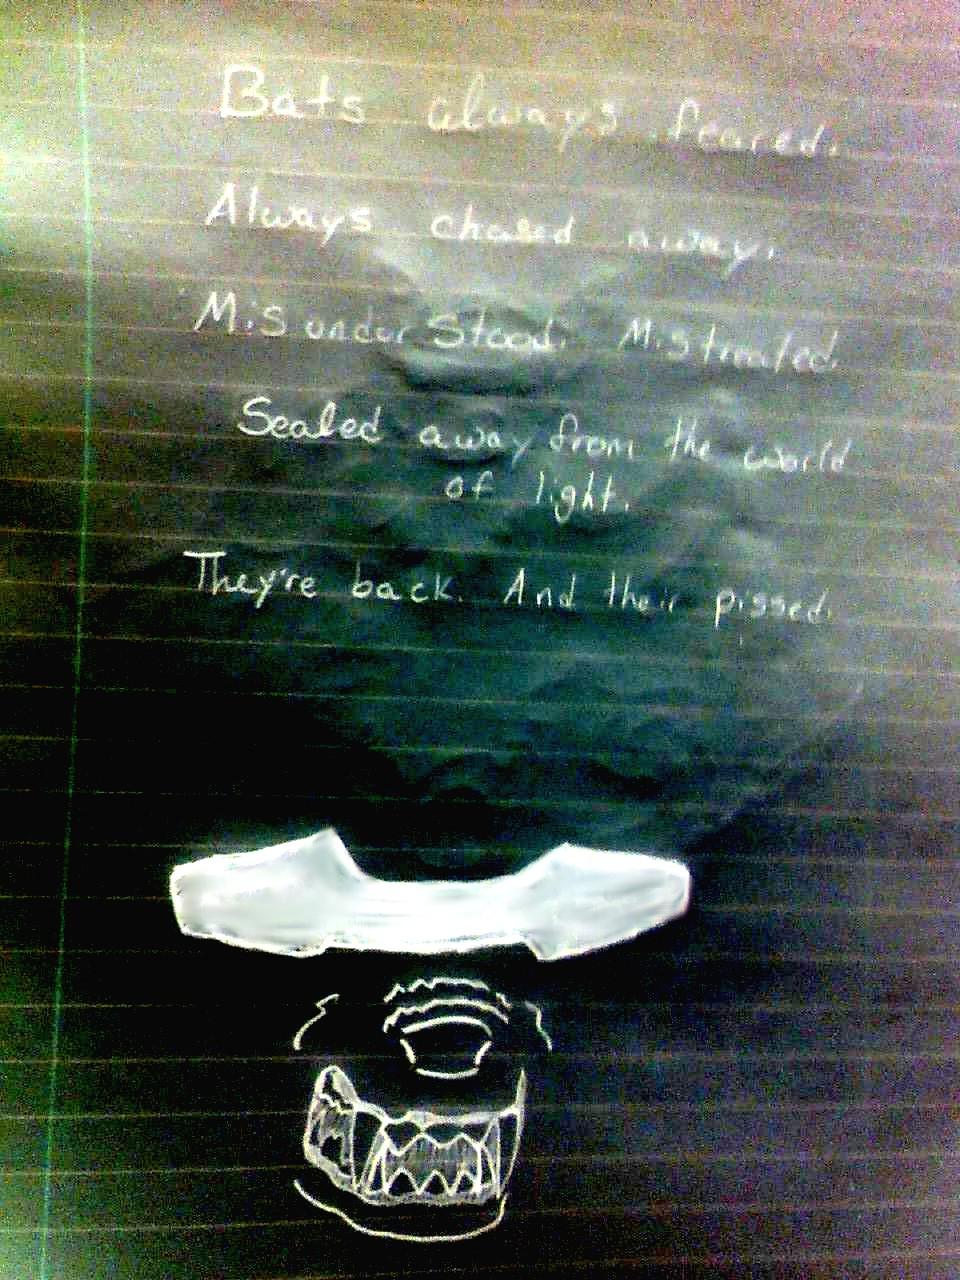 Bats always feared.
Always chased away.
Misunderstood. Mistreated.
Sealed away from the world
of light.
They're back. And their pissed.